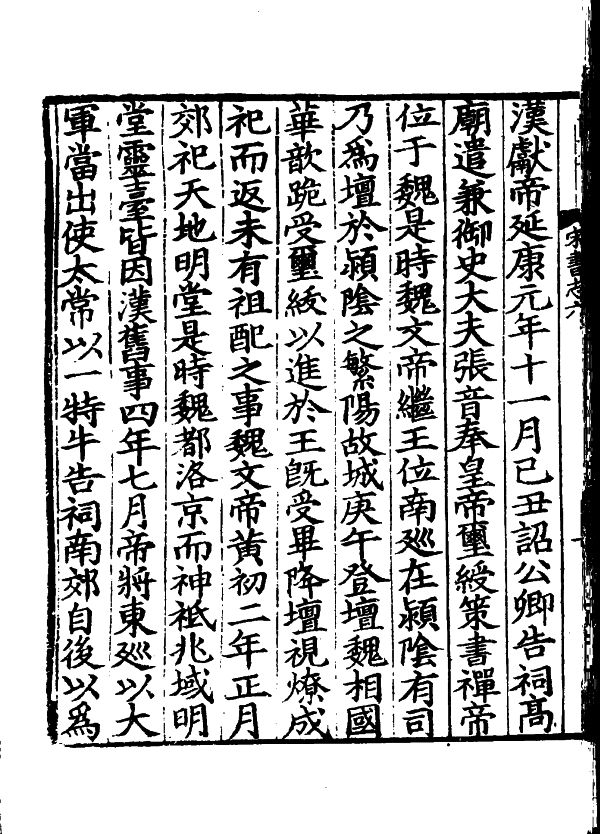 宋書志六
漢獻帝延康元年十一月己丑詔公卿告祠高
廟遣兼御史大夫張音奉皇帝璽綬策書禪帝
位于魏是時魏文帝繼王位南廵在潁陰有司
乃爲壇於潁陰之繁陽故城庚午登壇魏相國
華歆跪受璽綬以進於王旣受畢降壇視燎成
祀而返未有祖配之事魏文帝黃初二年正月
郊祀天地明堂是時魏都洛京而神祇兆域明
堂靈臺皆因漢舊事四年七月帝將東廵以大
軍當出使太常以一特牛告祠南郊自後以爲